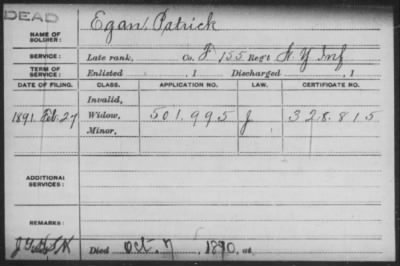 DEAD
NAME OF SOLDIER: Egan, Patrick
SERVICE: Late rank, Co. F 155 Reg't N. Y. Inf
TERM OF SERVICE: Enlisted , 1 Discharged , 1
DATE OF FILING. CLASS. APPLICATION NO. LAW. CERTIFICATE NO.
Invalid,
1891 Feb. 27 Widow, 501.995 J 328.815
Minor,
ADDITIONAL SERVICES:
REMARKS:
Died Oct. 7, 1890, at